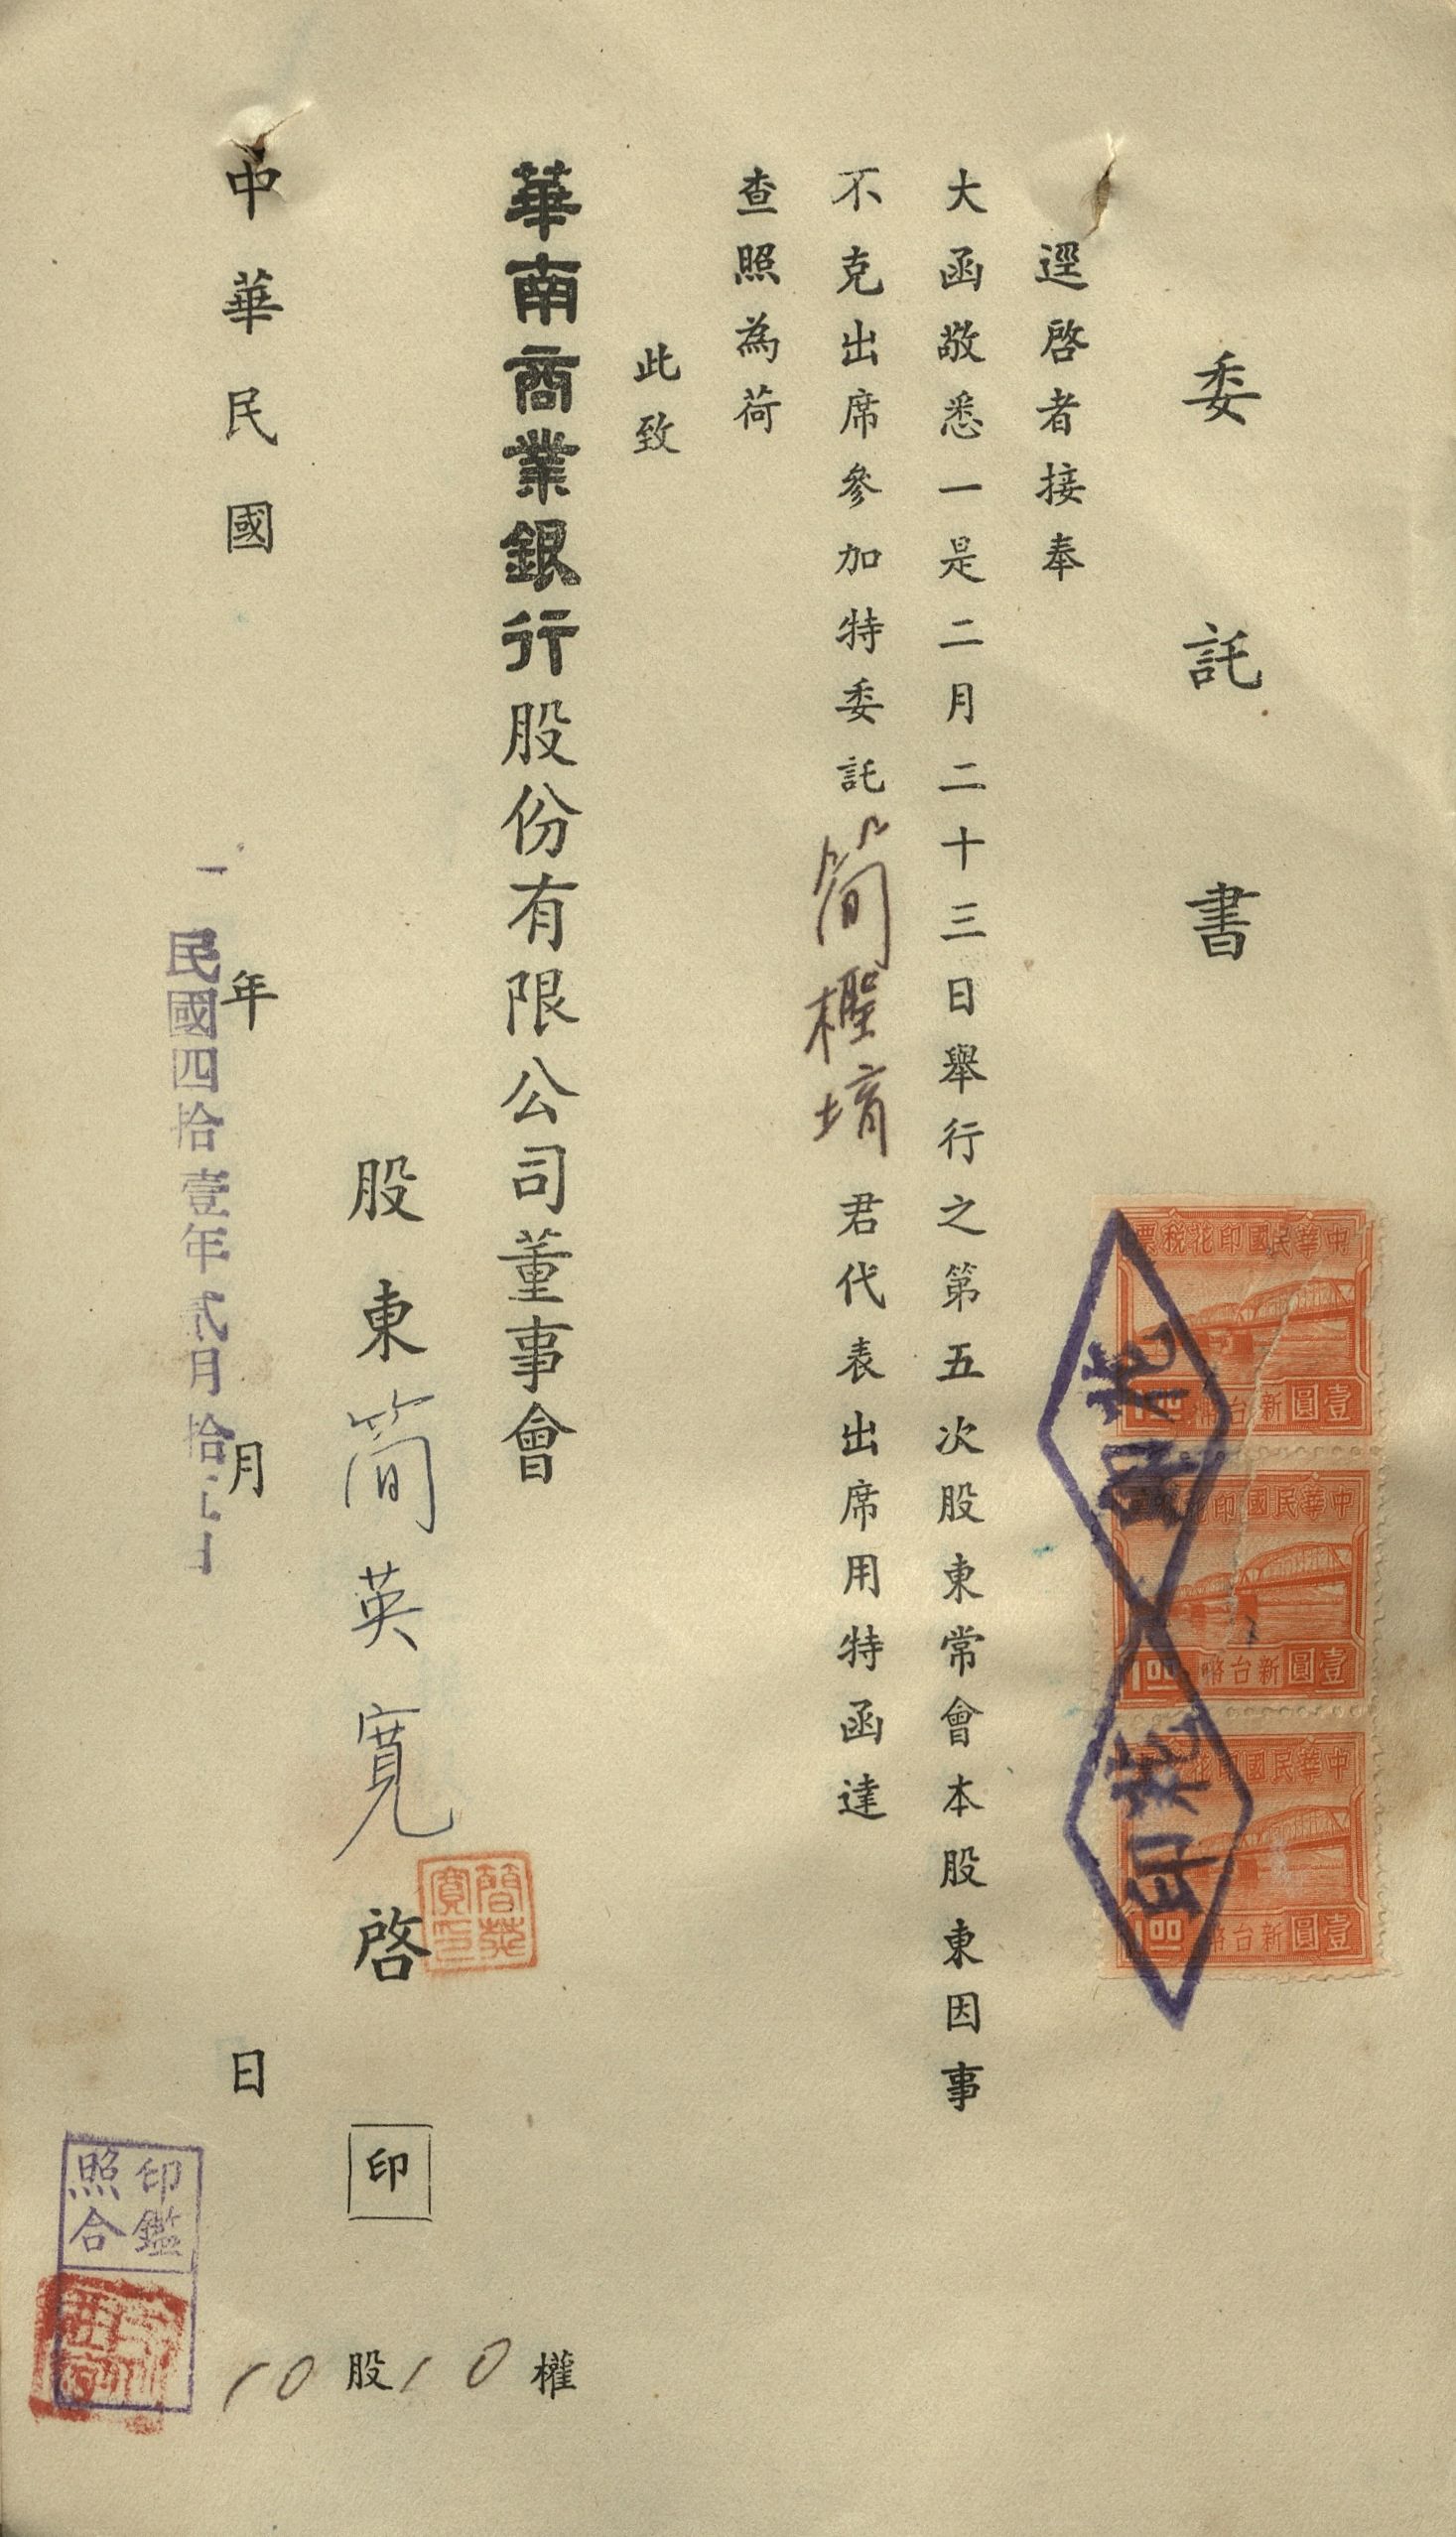 委託書
逕啓者接奉
大函敬悉一是二月二十三日舉行之第五次股東常會本股東因事
不克出席參加特委託簡檉堉君代表出席用特函達
查照為荷
此致
華南商業銀行股份有限公司董事會
股東簡英寬啓印
10股10權
中華民國年月日
民國四拾壹年貳月拾日
中華民國印花稅票
壹圓新台幣1.00
中華民國印花
壹圓新台幣1.00
中華民國印花
壹圓新台幣1.00
印花
印花
簡英寬印
印鑑照合